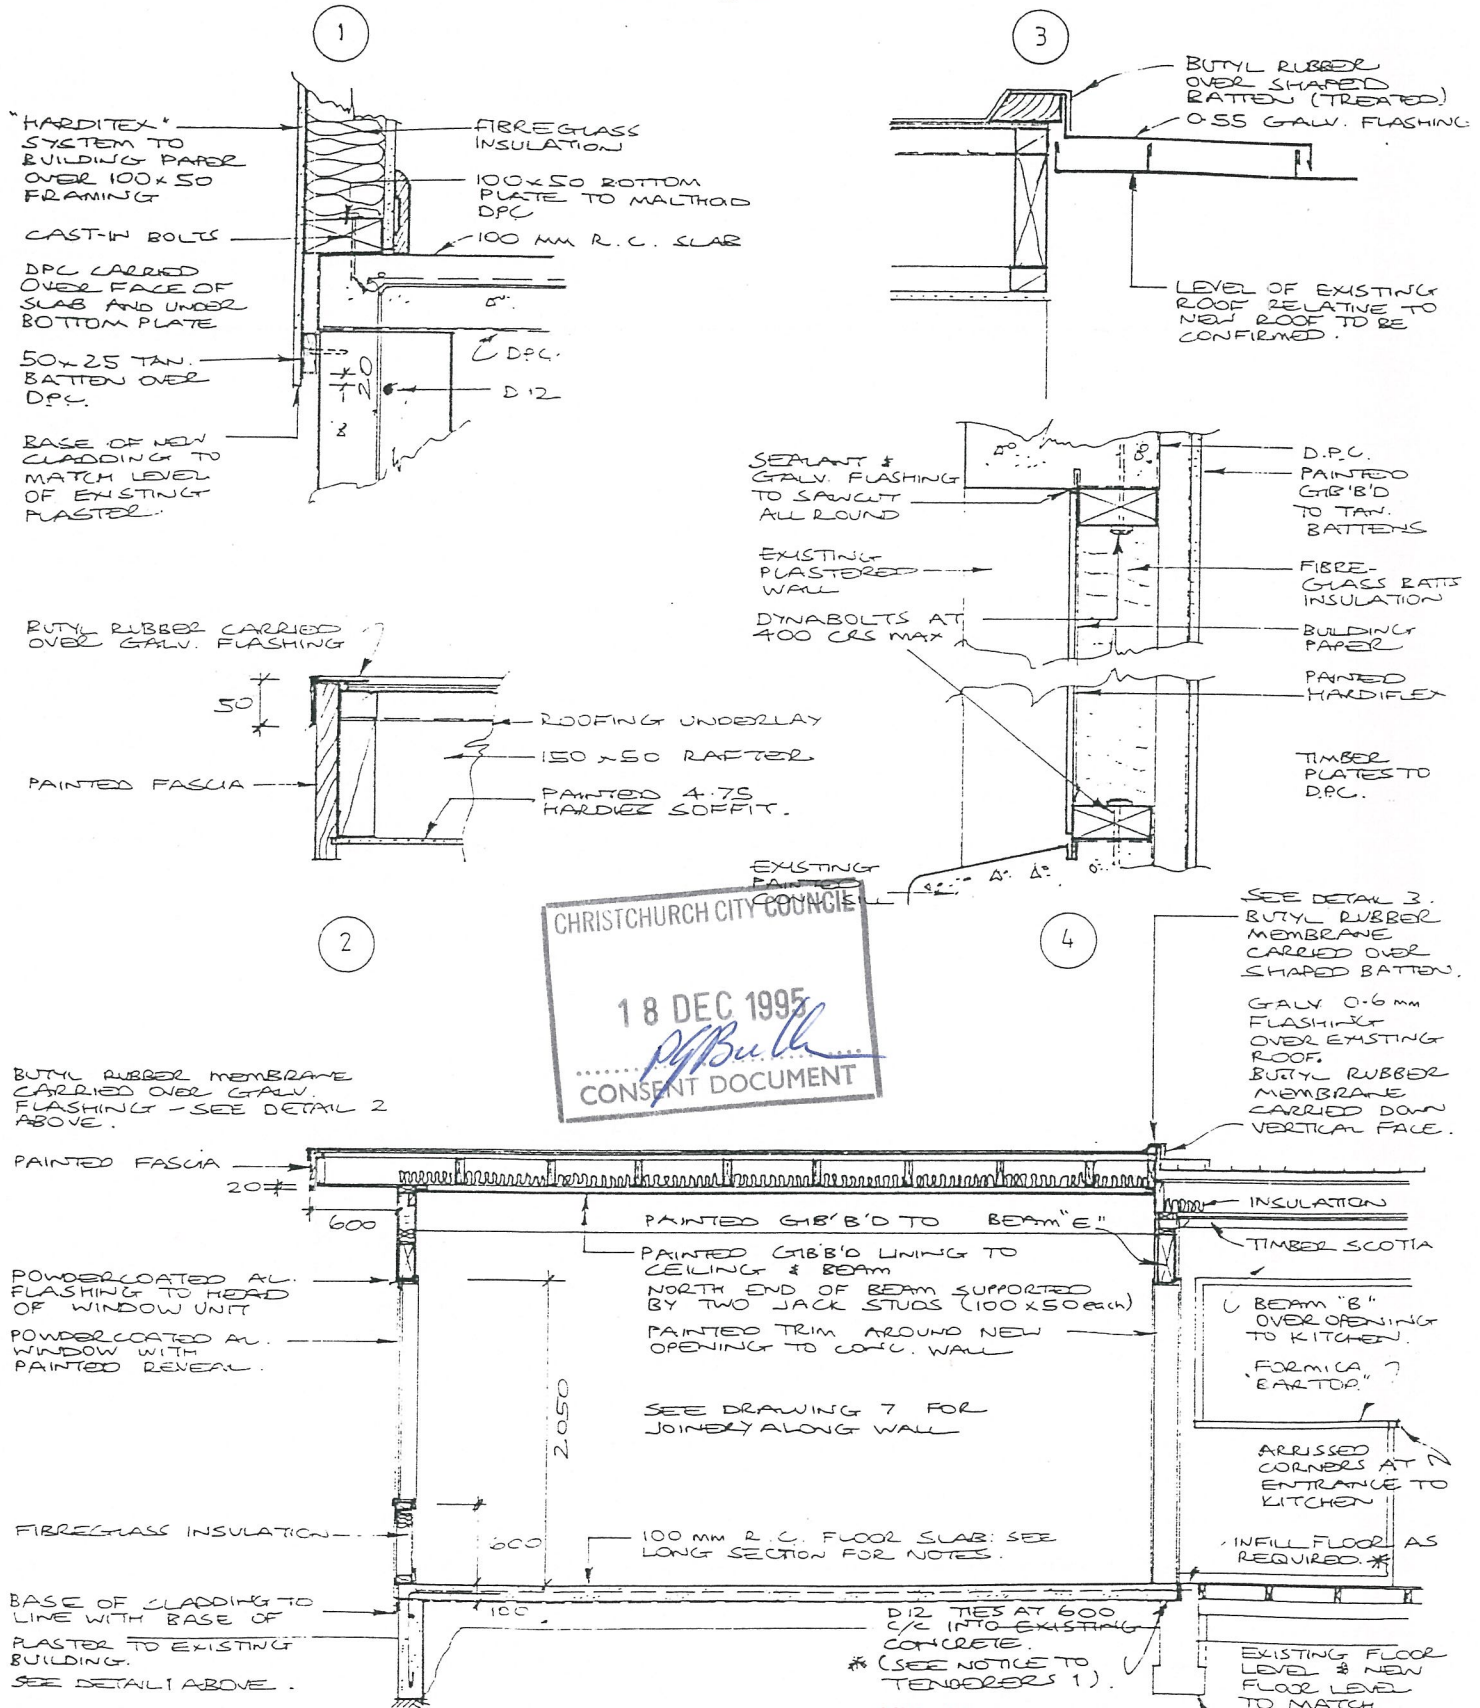 1
"HARDITEX"
SYSTEM TO
BUILDING PAPER
OVER 100x50
FRAMING
CAST-IN BOLTS
DPC CARRIED
OVER FACE OF
SLAB AND UNDER
BOTTOM PLATE
50x25 TAN.
BATTEN OVER
DPC.
BASE OF NEW
CLADDING TO
MATCH LEVEL
OF EXISTING
PLASTER.
FIBREGLASS
INSULATION
100x50 BOTTOM
PLATE TO MALTHOID
DPC
100 MM R.C. SLAB
D.P.C.
20
D12
3
BUTYL RUBBER
OVER SHAPED
BATTEN (TREATED)
0.55 GALV. FLASHING
LEVEL OF EXISTING
ROOF RELATIVE TO
NEW ROOF TO BE
CONFIRMED.
BUTYL RUBBER CARRIED
OVER GALV. FLASHING
50
PAINTED FASCIA
ROOFING UNDERLAY
150x50 RAFTER
PAINTED 4.75
HARDIES SOFFIT.
2
SEALANT &
GALV. FLASHING
TO SAWCUT
ALL ROUND
EXISTING
PLASTERED
WALL
DYNABOLTS AT
400 CRS MAX
EXISTING
PAINTED
CONC. SILL
D.P.C.
PAINTED
GIB'B'D
TO TAN.
BATTENS
FIBRE-
GLASS BATTS
INSULATION
BUILDING
PAPER
PAINTED
HARDIFLEX
TIMBER
PLATES TO
DPC.
4
CHRISTCHURCH CITY COUNCIL
18 DEC 1995
CONSENT DOCUMENT
SEE DETAIL 3.
BUTYL RUBBER
MEMBRANE
CARRIED OVER
SHAPED BATTEN.
GALV 0.6 mm
FLASHING
OVER EXISTING
ROOF.
BUTYL RUBBER
MEMBRANE
CARRIED DOWN
VERTICAL FACE.
BUTYL RUBBER MEMBRANE
CARRIED OVER GALV.
FLASHING - SEE DETAIL 2
ABOVE.
PAINTED FASCIA
20
600
POWDERCOATED AL.
FLASHING TO HEAD
OF WINDOW UNIT
POWDERCOATED AL.
WINDOW WITH
PAINTED REVEAL.
FIBREGLASS INSULATION
BASE OF CLADDING TO
LINE WITH BASE OF
PLASTER TO EXISTING
BUILDING.
SEE DETAIL 1 ABOVE.
PAINTED GIB'B'D TO BEAM "E"
PAINTED GIB'B'D LINING TO
CEILING & BEAM
NORTH END OF BEAM SUPPORTED
BY TWO JACK STUDS (100x50 each)
PAINTED TRIM AROUND NEW
OPENING TO CONC. WALL
2050
SEE DRAWING 7 FOR
JOINERY ALONG WALL
600
100 MM R.C. FLOOR SLAB: SEE
LONG SECTION FOR NOTES.
100
D12 TIES AT 600
C/C INTO EXISTING
CONCRETE.
* (SEE NOTICE TO
TENDERERS 1).
INSULATION
TIMBER SCOTIA
BEAM "B"
OVER OPENING
TO KITCHEN.
FORMICA
ARRISSED
CORNERS AT
ENTRANCE TO
KITCHEN
INFILL FLOOR AS
REQUIRED. *
EXISTING FLOOR
LEVEL & NEW
FLOOR LEVEL
TO MATCH